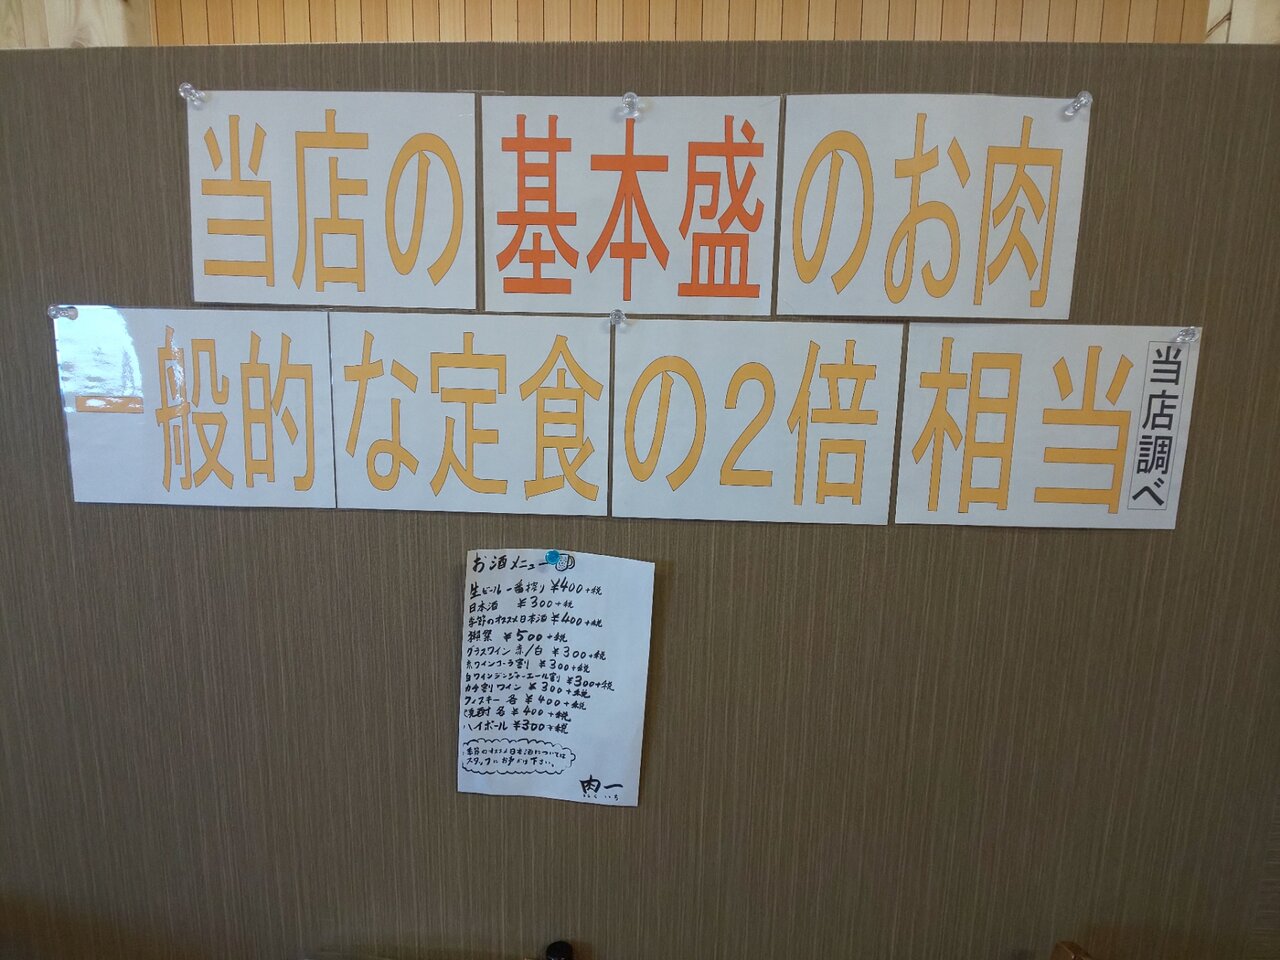 当店の基本盛のお肉
一般的な定食の2倍相当
当店調べ
お酒メニュー
生ビール 一番搾り ¥400+税
日本酒 ¥300+税
季節のオススメ日本酒 ¥400+税
獺祭 ¥500+税
グラスワイン 赤/白 ¥300+税
赤ワインコーラ割り ¥300+税
白ワインジンジャーエール割 ¥300+税
カチ割りワイン ¥300+税
ウィスキー 各 ¥400+税
焼酎 各 ¥400+税
ハイボール ¥300+税
季節のオススメ日本酒については
スタッフにお声がけ下さい。
肉一